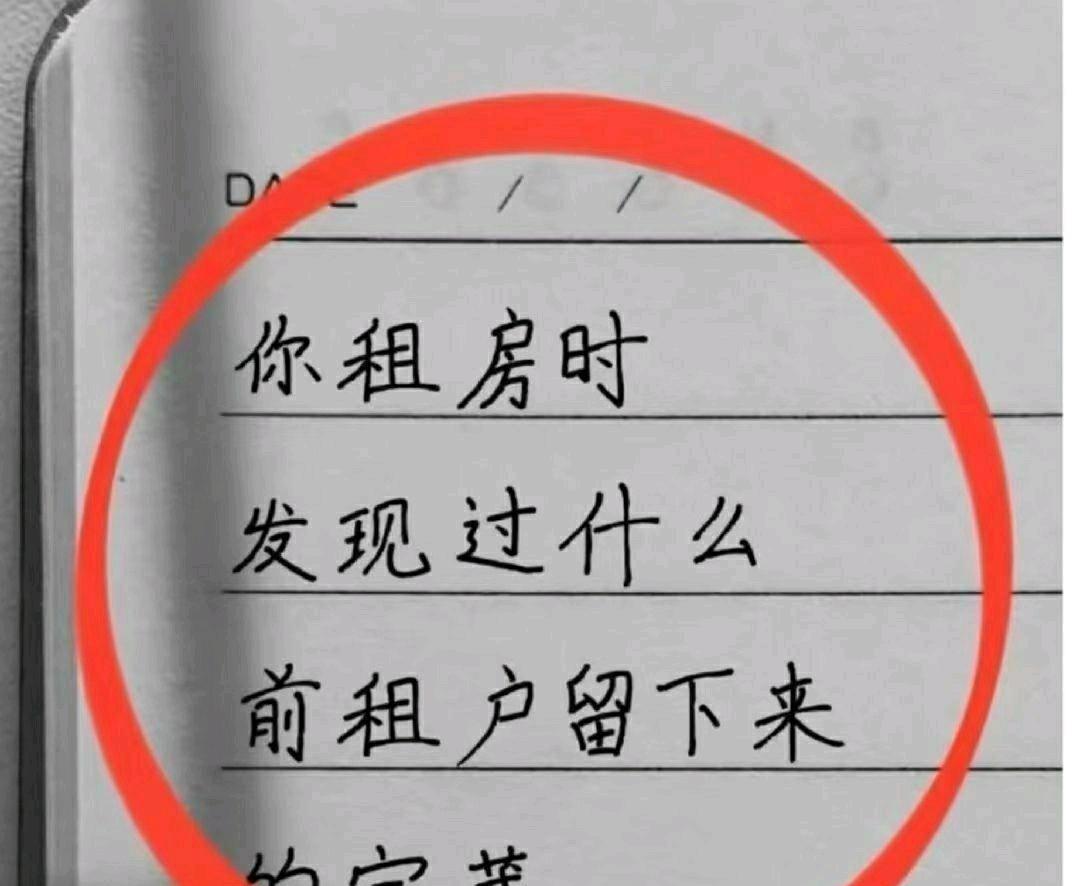 DATE / /
你租房时
发现过什么
前租户留下来